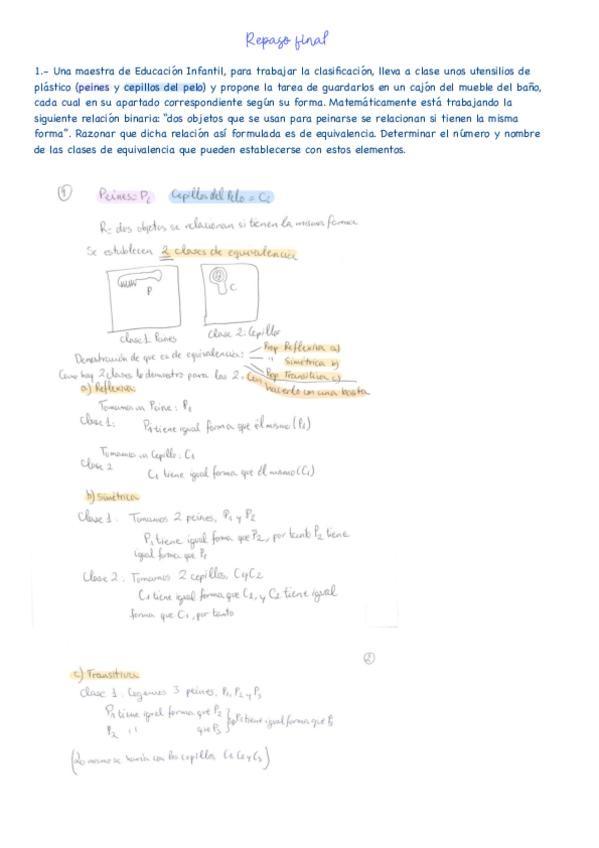 Repaso final
1.- Una maestra de Educación Infantil, para trabajar la clasificación, lleva a clase unos utensilios de
plástico (peines y cepillos del pelo) y propone la tarea de guardarlos en un cajón del mueble del baño,
cada cual en su apartado correspondiente según su forma. Matemáticamente está trabajando la
siguiente relación binaria: "dos objetos que se usan para peinarse se relacionan si tienen la misma
forma". Razonar que dicha relación así formulada es de equivalencia. Determinar el número y nombre
de las clases de equivalencia que pueden establecerse con estos elementos.
1 Peines = Pi Cepillos del Pelo = Ci
R = dos objetos se relacionan si tienen la misma forma
Se establecen 2 clases de equivalencia
P C
Clase 1. Peines Clase 2: Cepillos
Demostración de que es de equivalencia: Prop Reflexiva a)
" Simétrica b)
Prop Transitiva c)
Como hay 2 clases lo demuestro para las 2. Con hacerlo con una basta
a) Reflexiva:
Tomamos un Peine: P1
Clase 1: P1 tiene igual forma que él mismo (P1)
Tomamos un Cepillo: C1
Clase 2 C1 tiene igual forma que él mismo (C1)
b) Simétrica
Clase 1. Tomamos 2 peines, P1 y P2
P1 tiene igual forma que P2, por tanto P2 tiene
igual forma que P1
Clase 2: Tomamos 2 cepillos, C1 y C2
C1 tiene igual forma que C2, y C2 tiene igual
forma que C1, por tanto
2
c) Transitiva
Clase 1. Cogemos 3 peines, P1, P2 y P3
P1 tiene igual forma que P2
P2 " que P3 P1 tiene igual forma que P3
(Lo mismo se haría con los cepillos C1 C2 y C3)